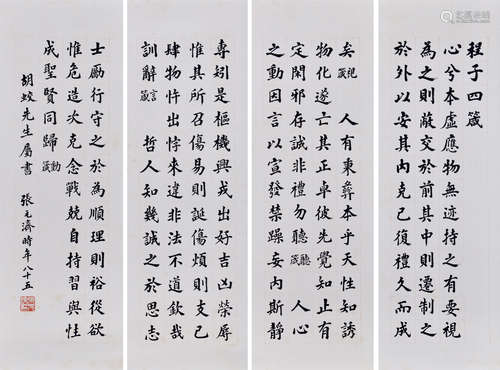 程子四箴
心兮本虛應物無迹持之有要視
為之則蔽交於前其中則遷制之
於外以安其內克己復禮久而成
矣視箴 人有秉彝本乎天性知誘
物化遂亡其正卓彼先覺知止有
定閑邪存誠非禮勿聽聽箴 人心
之動因言以宣發禁躁妄內斯靜
專矧是樞機興戎出好吉凶榮辱
惟其所召傷易則誕傷煩則支己
肆物忤出悖來違非法不道欽哉
訓辭言箴 哲人知幾誠之於思志
士勵行守之於為順理則裕從欲
惟危造次克念戰兢自持習與性
成聖賢同歸動箴
胡蛟先生屬書 張元濟時年八十五